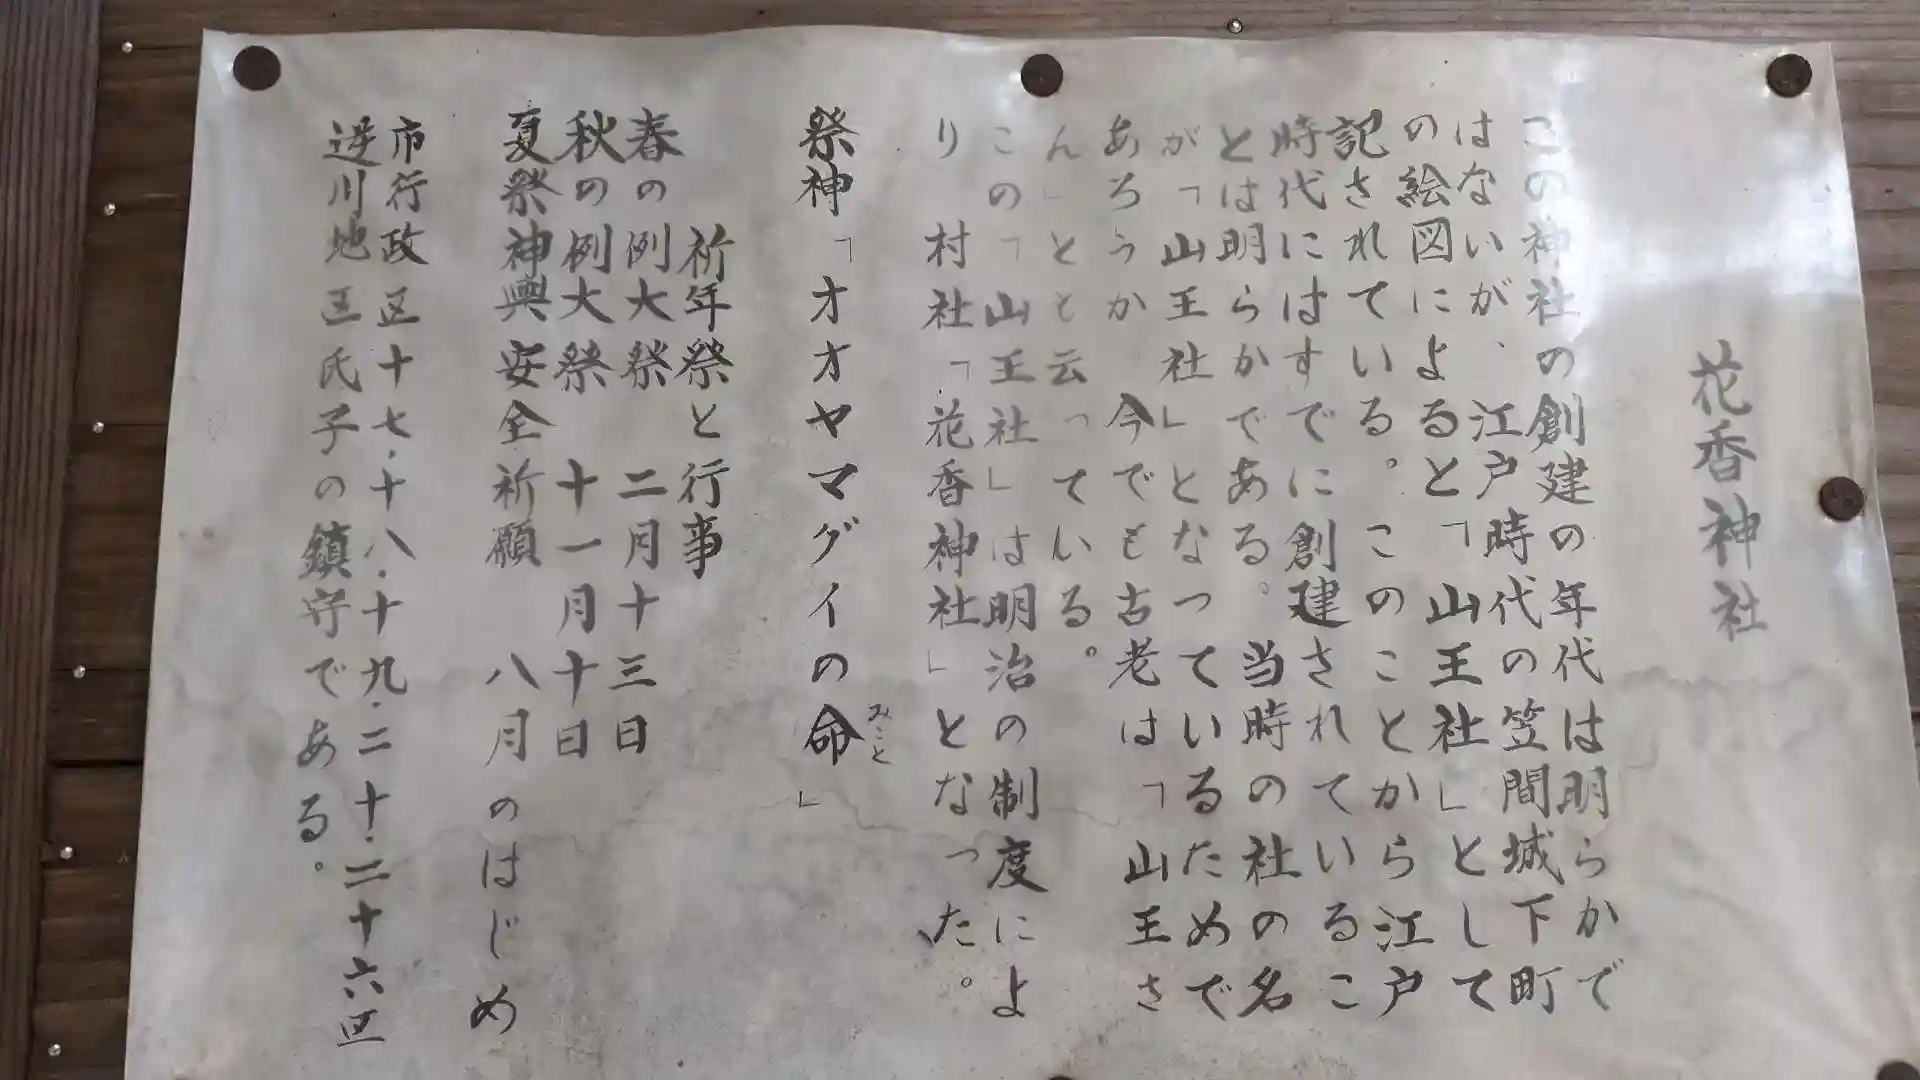 花香神社
この神社の創建の年代は明らかで
はないが、江戸時代の笠間城下町
の絵図によると「山王社」として
記されている。このことから江戸
時代にはすでに創建されているこ
とは明らかである。当時の社の名
が「山王社」となっているためで
あろうか 今でも古老は「山王さ
ん」とと云っている。
この「山王社」は明治の制度によ
り 村社「花香神社」となった。
祭神「オオヤマグイの命」
みこと
祈年祭と行事
春の例大祭 二月十三日
秋の例大祭 十一月十日
夏祭神輿安全祈願 八月のはじめ
市行政区十七・十八・十九・二十・二十六区
逆川地区氏子の鎮守である。